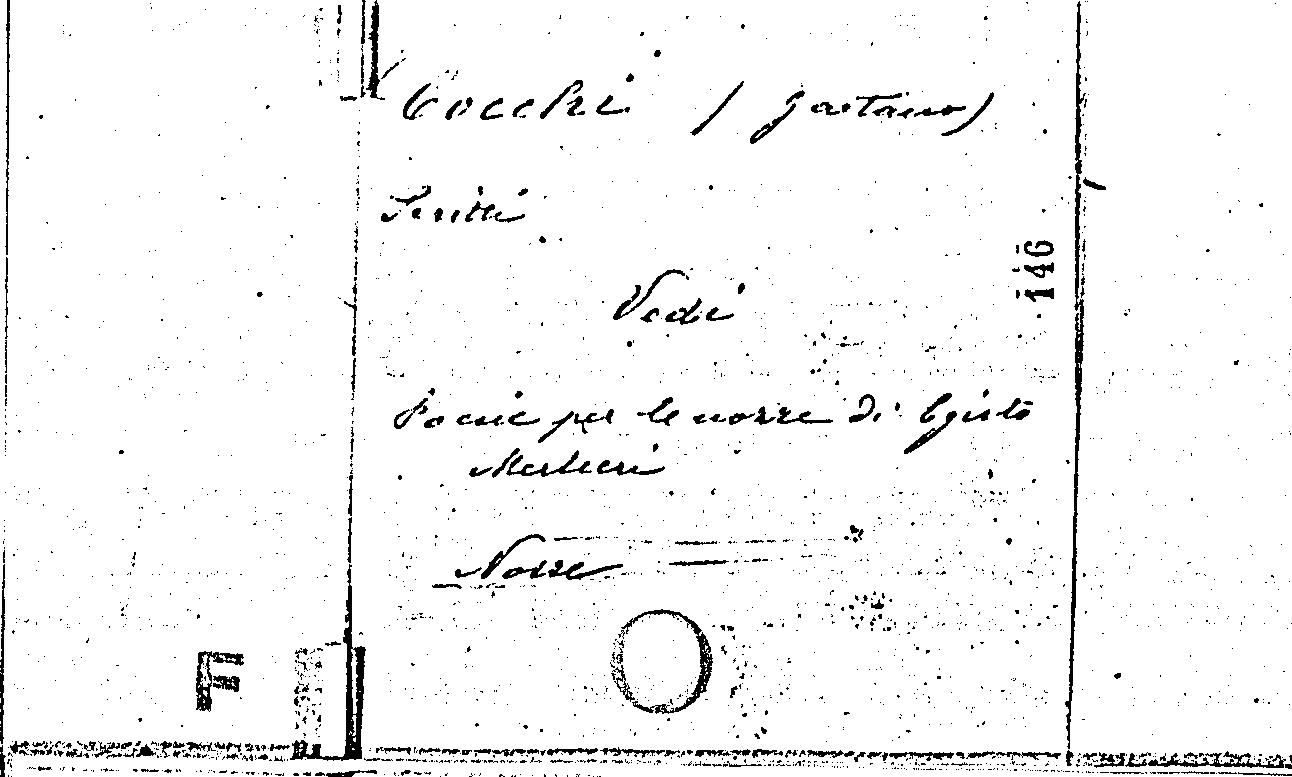 Cocchi (Gaetano)
Scritti
146
Vedi
Poesie per le nozze di Egisto
Nozze
F